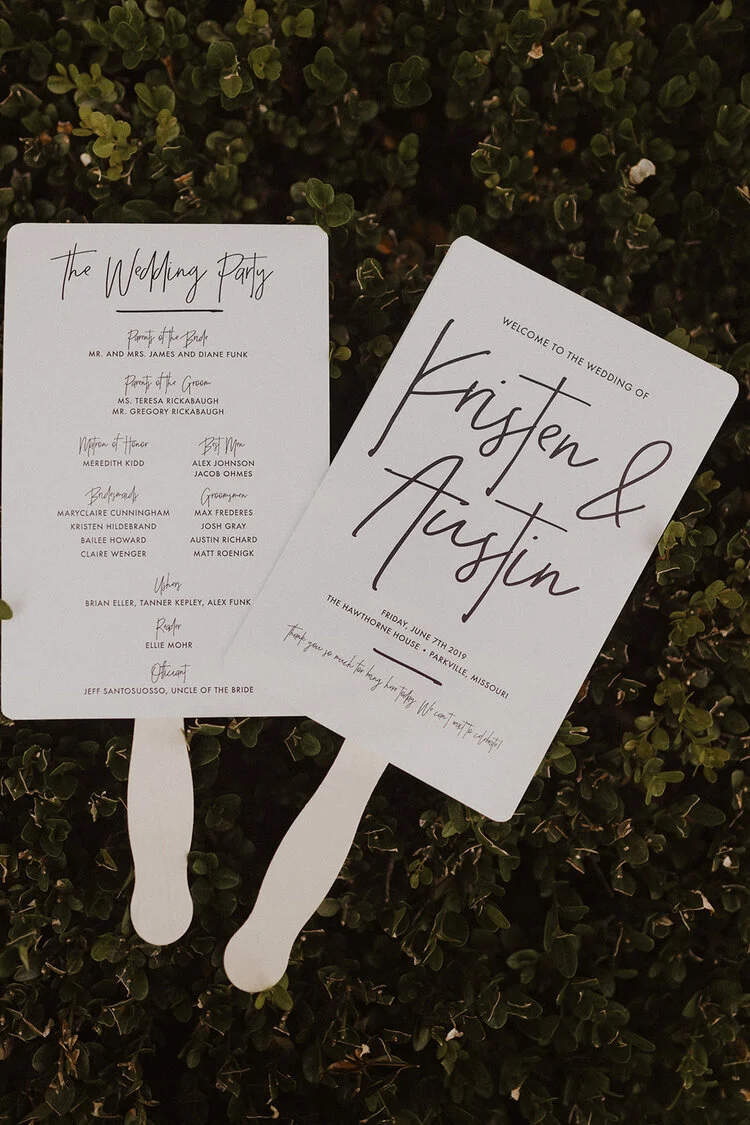 the Wedding Party
Parents of the Bride
MR. AND MRS. JAMES AND DIANE FUNK
Parents of the Groom
MS. TERESA RICKABAUGH
MR. GREGORY RICKABAUGH
Matron of Honor
MEREDITH KIDD
Best Men
ALEX JOHNSON
JACOB OHMES
Bridesmaids
MARYCLAIRE CUNNINGHAM
KRISTEN HILDEBRAND
BAILEE HOWARD
CLAIRE WENGER
Groomsmen
MAX FREDERES
JOSH GRAY
AUSTIN RICHARD
MATT ROENIGK
Ushers
BRIAN ELLER, TANNER KEPLEY, ALEX FUNK
Reader
ELLIE MOHR
Officiant
JEFF SANTOSUOSSO, UNCLE OF THE BRIDE
WELCOME TO THE WEDDING OF
Kristen &
Austin
FRIDAY, JUNE 7TH 2019
THE HAWTHORNE HOUSE • PARKVILLE, MISSOURI
thank you so much for being here today. We can't wait to celebrate!